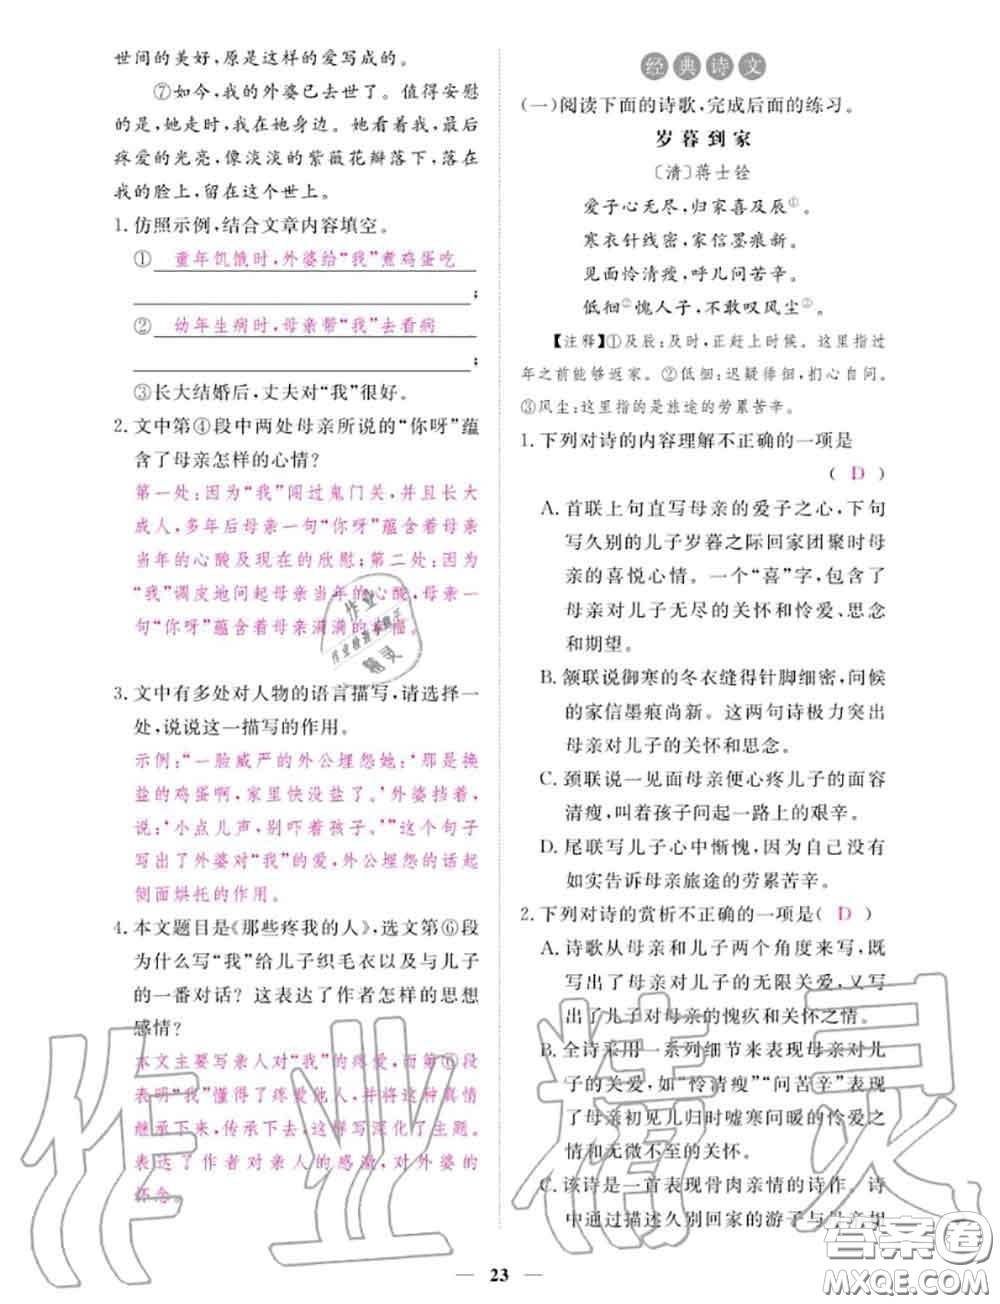 世间的美好，原是这样的爱写成的。
⑦如今，我的外婆已去世了。值得安慰
的是，她走时，我在她身边。她看着我，最后
疼爱的光亮，像淡淡的紫薇花瓣落下，落在
我的脸上，留在这个世上。
1. 仿照示例，结合文章内容填空。
① 童年饥饿时，外婆给“我”煮鸡蛋吃
；
② 幼年生病时，母亲帮“我”去看病
；
③长大结婚后，丈夫对“我”很好。
2. 文中第④段中两处母亲所说的“你呀”蕴
含了母亲怎样的心情？
第一处：因为“我”闯过鬼门关，并且长大
成人，多年后母亲一句“你呀”蕴含着母亲
当年的心酸及现在的欣慰；第二处：因为
“我”调皮地问起母亲当年的心酸，母亲一
句“你呀”蕴含着母亲满满的幸福。
3. 文中有多处对人物的语言描写，请选择一
处，说说这一描写的作用。
示例：“一脸威严的外公埋怨她：‘那是换
盐的鸡蛋啊，家里快没盐了。’外婆挡着，
说：‘小点儿声，别吓着孩子。’”这个句子
写出了外婆对“我”的爱，外公埋怨的话起
侧面烘托的作用。
4. 本文题目是《那些疼我的人》，选文第⑥段
为什么写“我”给儿子织毛衣以及与儿子
的一番对话？这表达了作者怎样的思想
感情？
本文主要写亲人对“我”的疼爱，而第⑥段
表明“我”懂得了疼爱他人，并将这种真情
继承下来，传承下去，这样写深化了主题。
表达了作者对亲人的感激，对外婆的
怀念。
经典诗文
（一）阅读下面的诗歌，完成后面的练习。
岁暮到家
〔清〕蒋士铨
爱子心无尽，归家喜及辰①。
寒衣针线密，家信墨痕新。
见面怜清瘦，呼儿问苦辛。
低徊②愧人子，不敢叹风尘②。
【注释】①及辰：及时，正赶上时候。这里指过
年之前能够返家。②低徊：迟疑徘徊，扪心自问。
③风尘：这里指的是旅途的劳累苦辛。
1. 下列对诗的内容理解不正确的一项是
（ D ）
A. 首联上句直写母亲的爱子之心，下句
写久别的儿子岁暮之际回家团聚时母
亲的喜悦心情。一个“喜”字，包含了
母亲对儿子无尽的关怀和怜爱、思念
和期望。
B. 颔联说御寒的冬衣缝得针脚细密，问候
的家信墨痕尚新。这两句诗极力突出
母亲对儿子的关怀和思念。
C. 颈联说一见面母亲便心疼儿子的面容
清瘦，叫着孩子问起一路上的艰辛。
D. 尾联写儿子心中惭愧，因为自己没有
如实告诉母亲旅途的劳累苦辛。
2. 下列对诗的赏析不正确的一项是（ D ）
A. 诗歌从母亲和儿子两个角度来写，既
写出了母亲对儿子的无限关爱，又写
出了儿子对母亲的愧疚和关怀之情。
B. 全诗采用一系列细节来表现母亲对儿
子的关爱，如“怜清瘦”“问苦辛”表现
了母亲初见儿归时嘘寒问暖的怜爱之
情和无微不至的关怀。
C. 该诗是一首表现骨肉亲情的诗作。诗
中通过描述久别回家的游子与母亲相
23
作业精灵
答案圈
MXQE.COM
作业
精灵